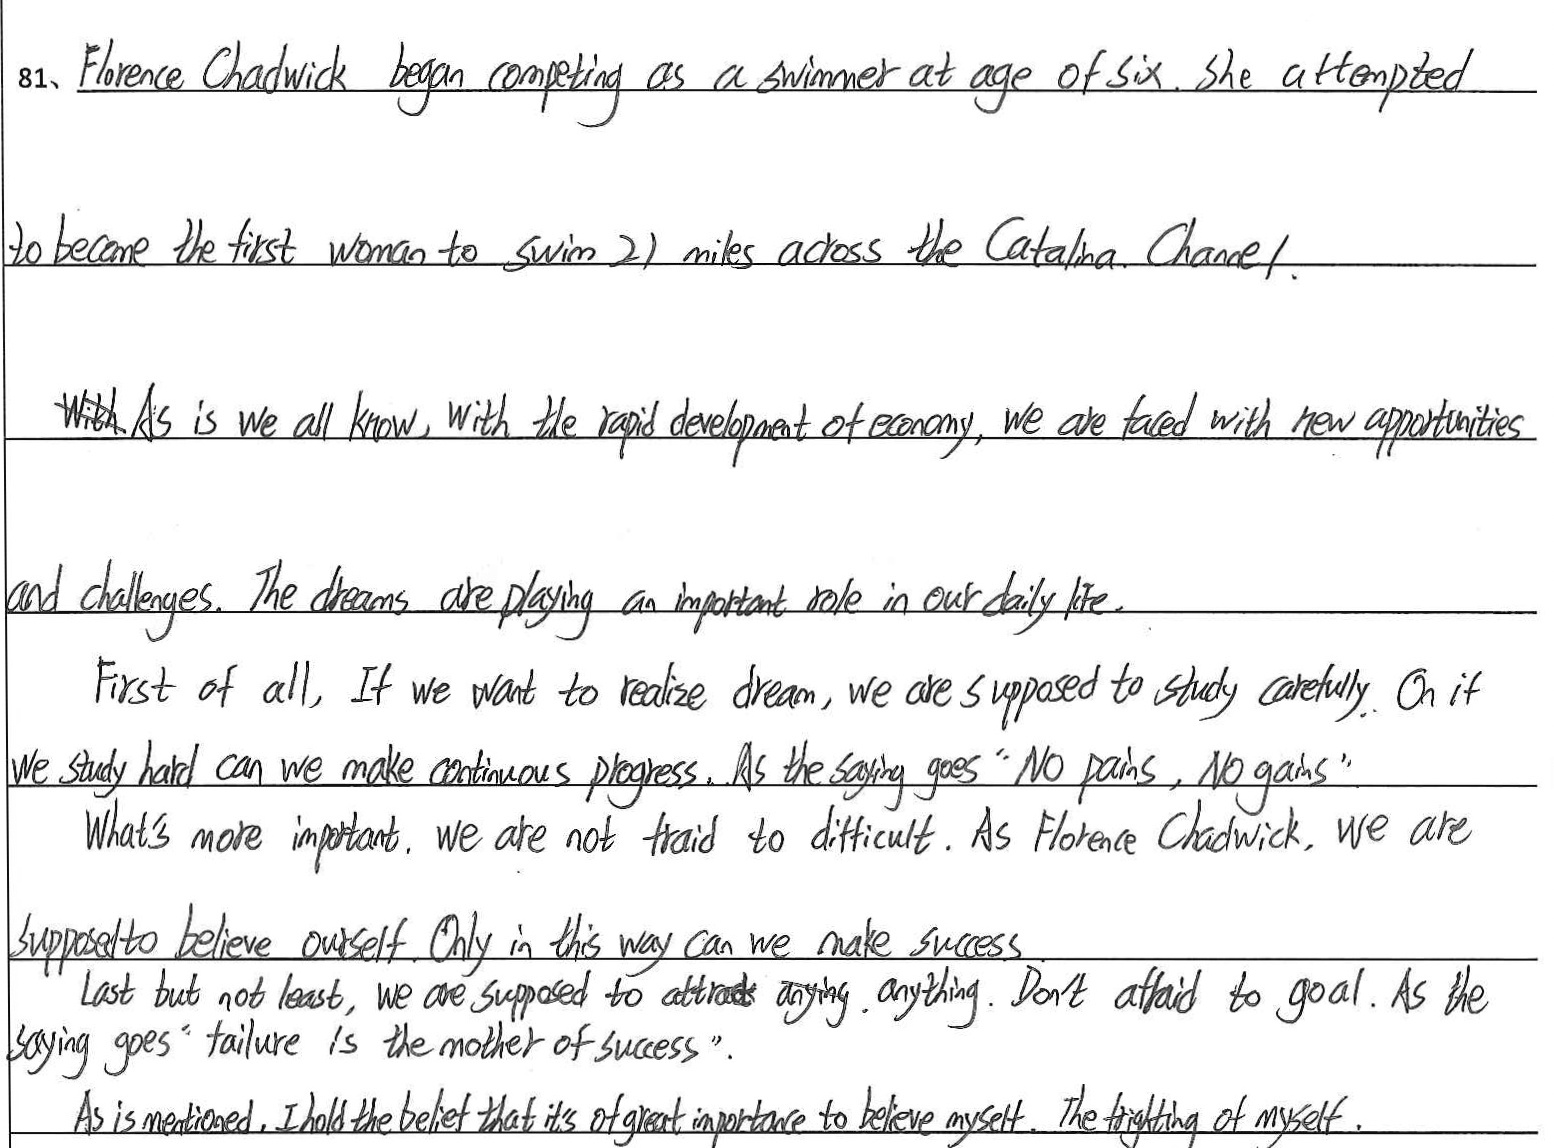 81、Florence Chadwick began competing as a swimmer at age of six. she attempted
to became the first woman to swim 21 miles across the Catalina Channel.
With As is we all know, with the rapid development of economy, we are faced with new opportunities
and challenges. The dreams are playing an important role in our daily life.
First of all, If we want to realize dream, we are supposed to study carefully. On if
we study hard can we make continuous progress. As the saying goes "No pains, No gains"
What's more important, we are not fraid to difficult. As Florence Chadwick, we are
supposed to believe ourself. Only in this way can we make success
Last but not least, we are supposed to anything. Don't affaid to goal. As the
saying goes "failure is the mother of success".
As is mentioned, I hold the belief that it's of great importance to believe myself. The frighting of myself.